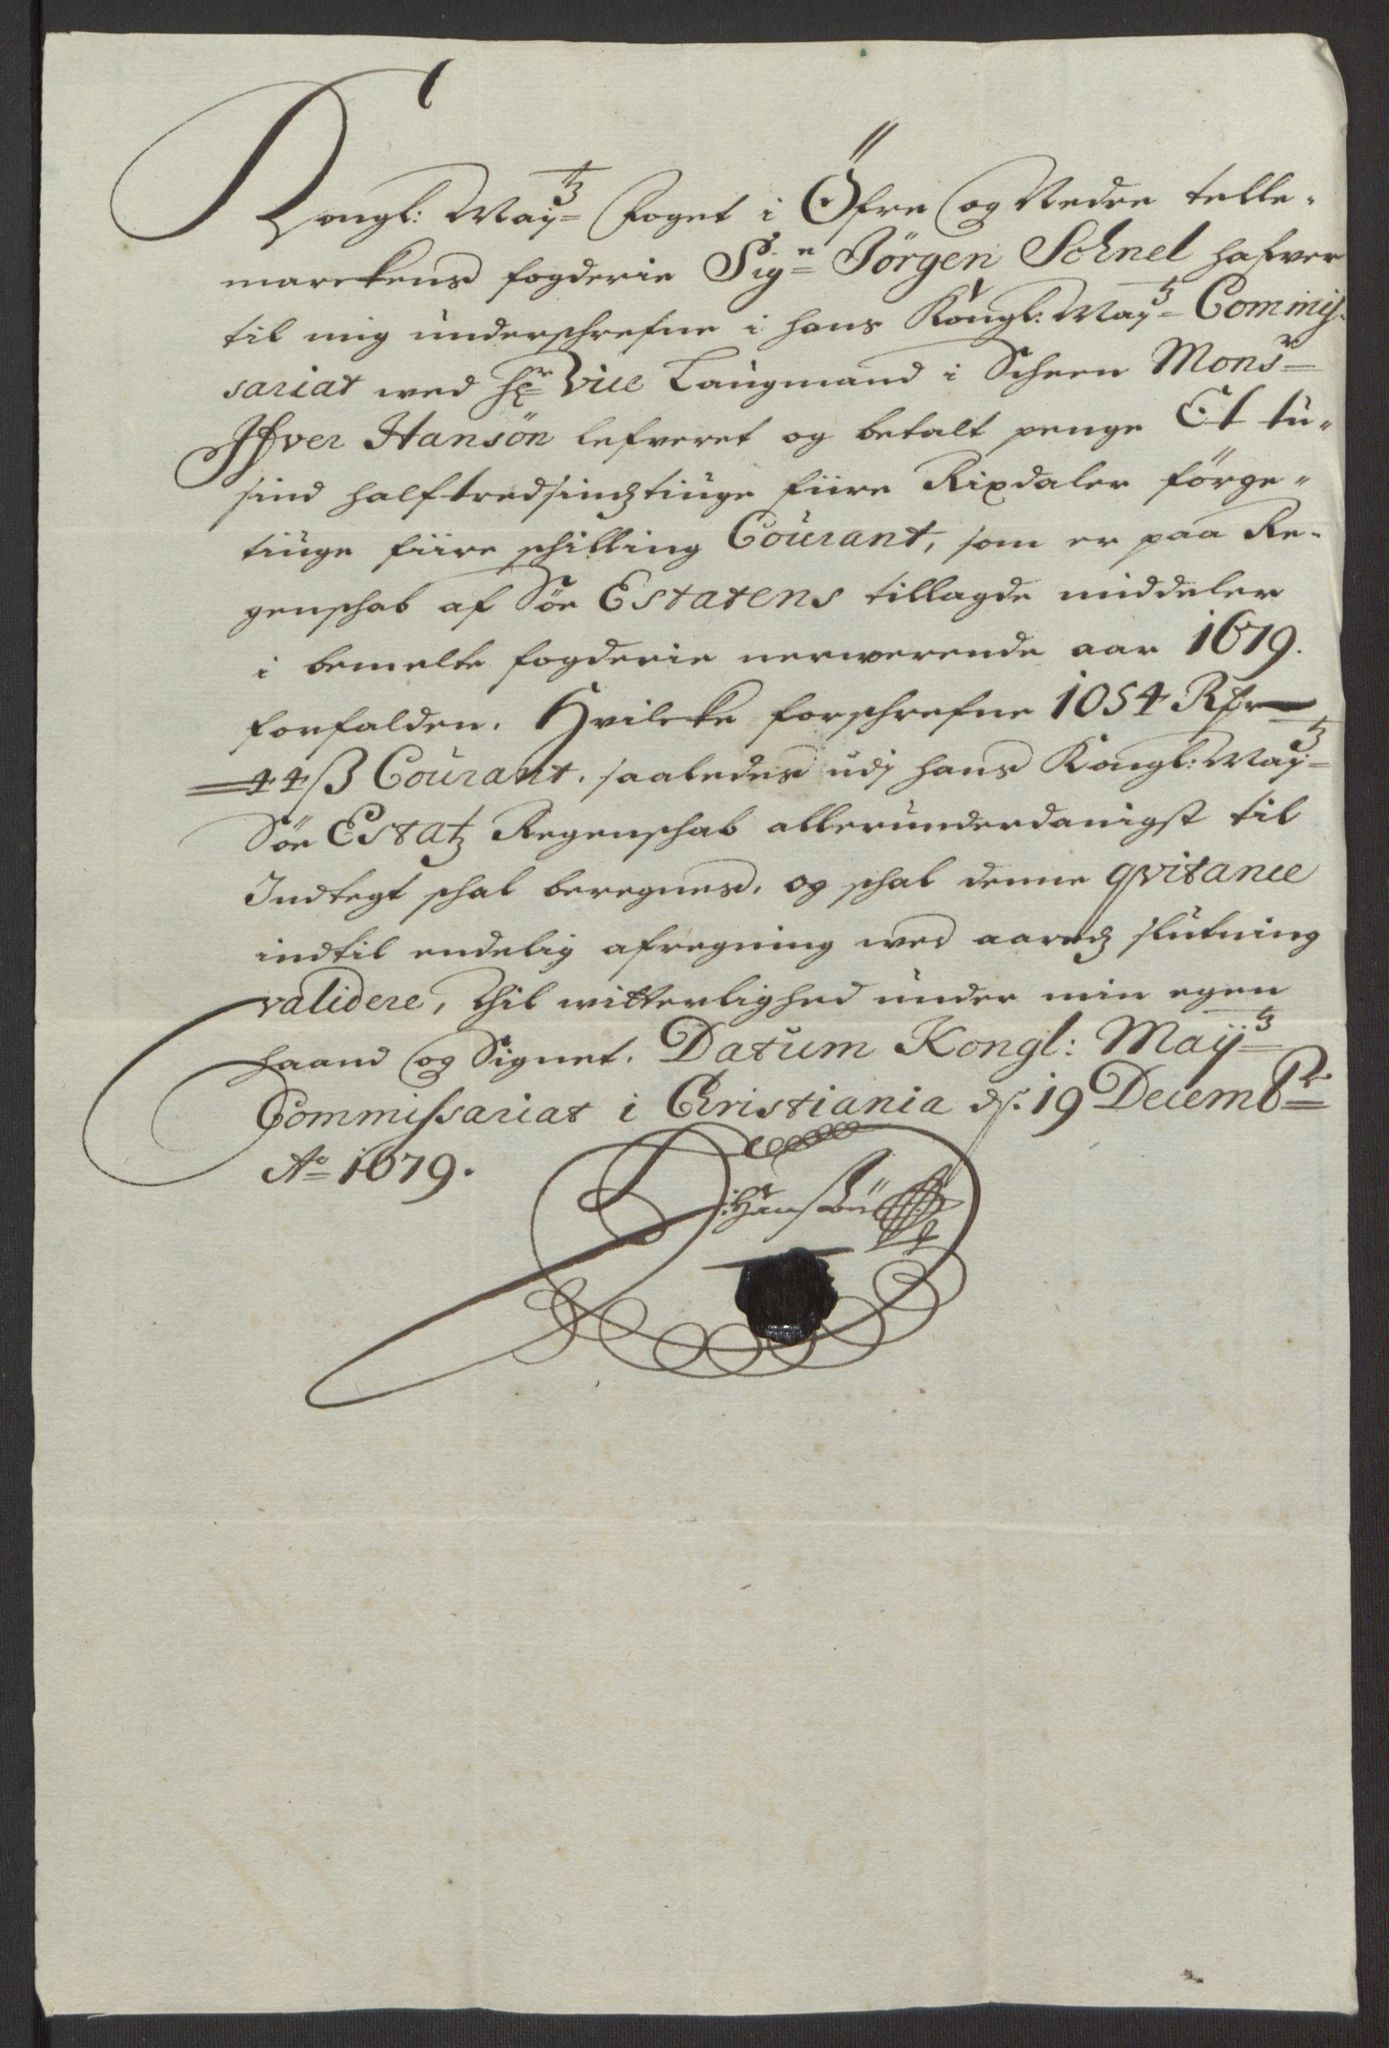 Kongl: May:tz Foget i Öfre og Nedre telle-
marckens fogderie Sig:n Jörgen Schnel hafver
til mig underschrefne i hans Kongl: May:tz Commis-
sariat wed Hr: Vice Laugmand i Scheen Mons:r
Ifver Hansön lefveret og betalt penge Et tu-
sind halftredsindztiuge fiire Rixdaler förge-
tiuge fiire schilling Courant, som er paa Re-
genschab af Söe Estatens tillagde middeler
i bemelte fogderie nerwerende aar 1679.
forfalden. Hvilcke forschrefne 1054 Rdr
44 ß Courant. saaledes udj hans Kongl: May:tz
Söe Estatz Regenschab allerunderdanigst til
Indtegt schal beregnes. og schal denne qvitance
indtil endelig afregning wed aaretz slutning
validere, Thil witterlighed under min egen
haand og Signet. Datum Kongl: Maÿ:tz
Commissariat i Christiania ds. 19 Decemb:r
Ao 1679.